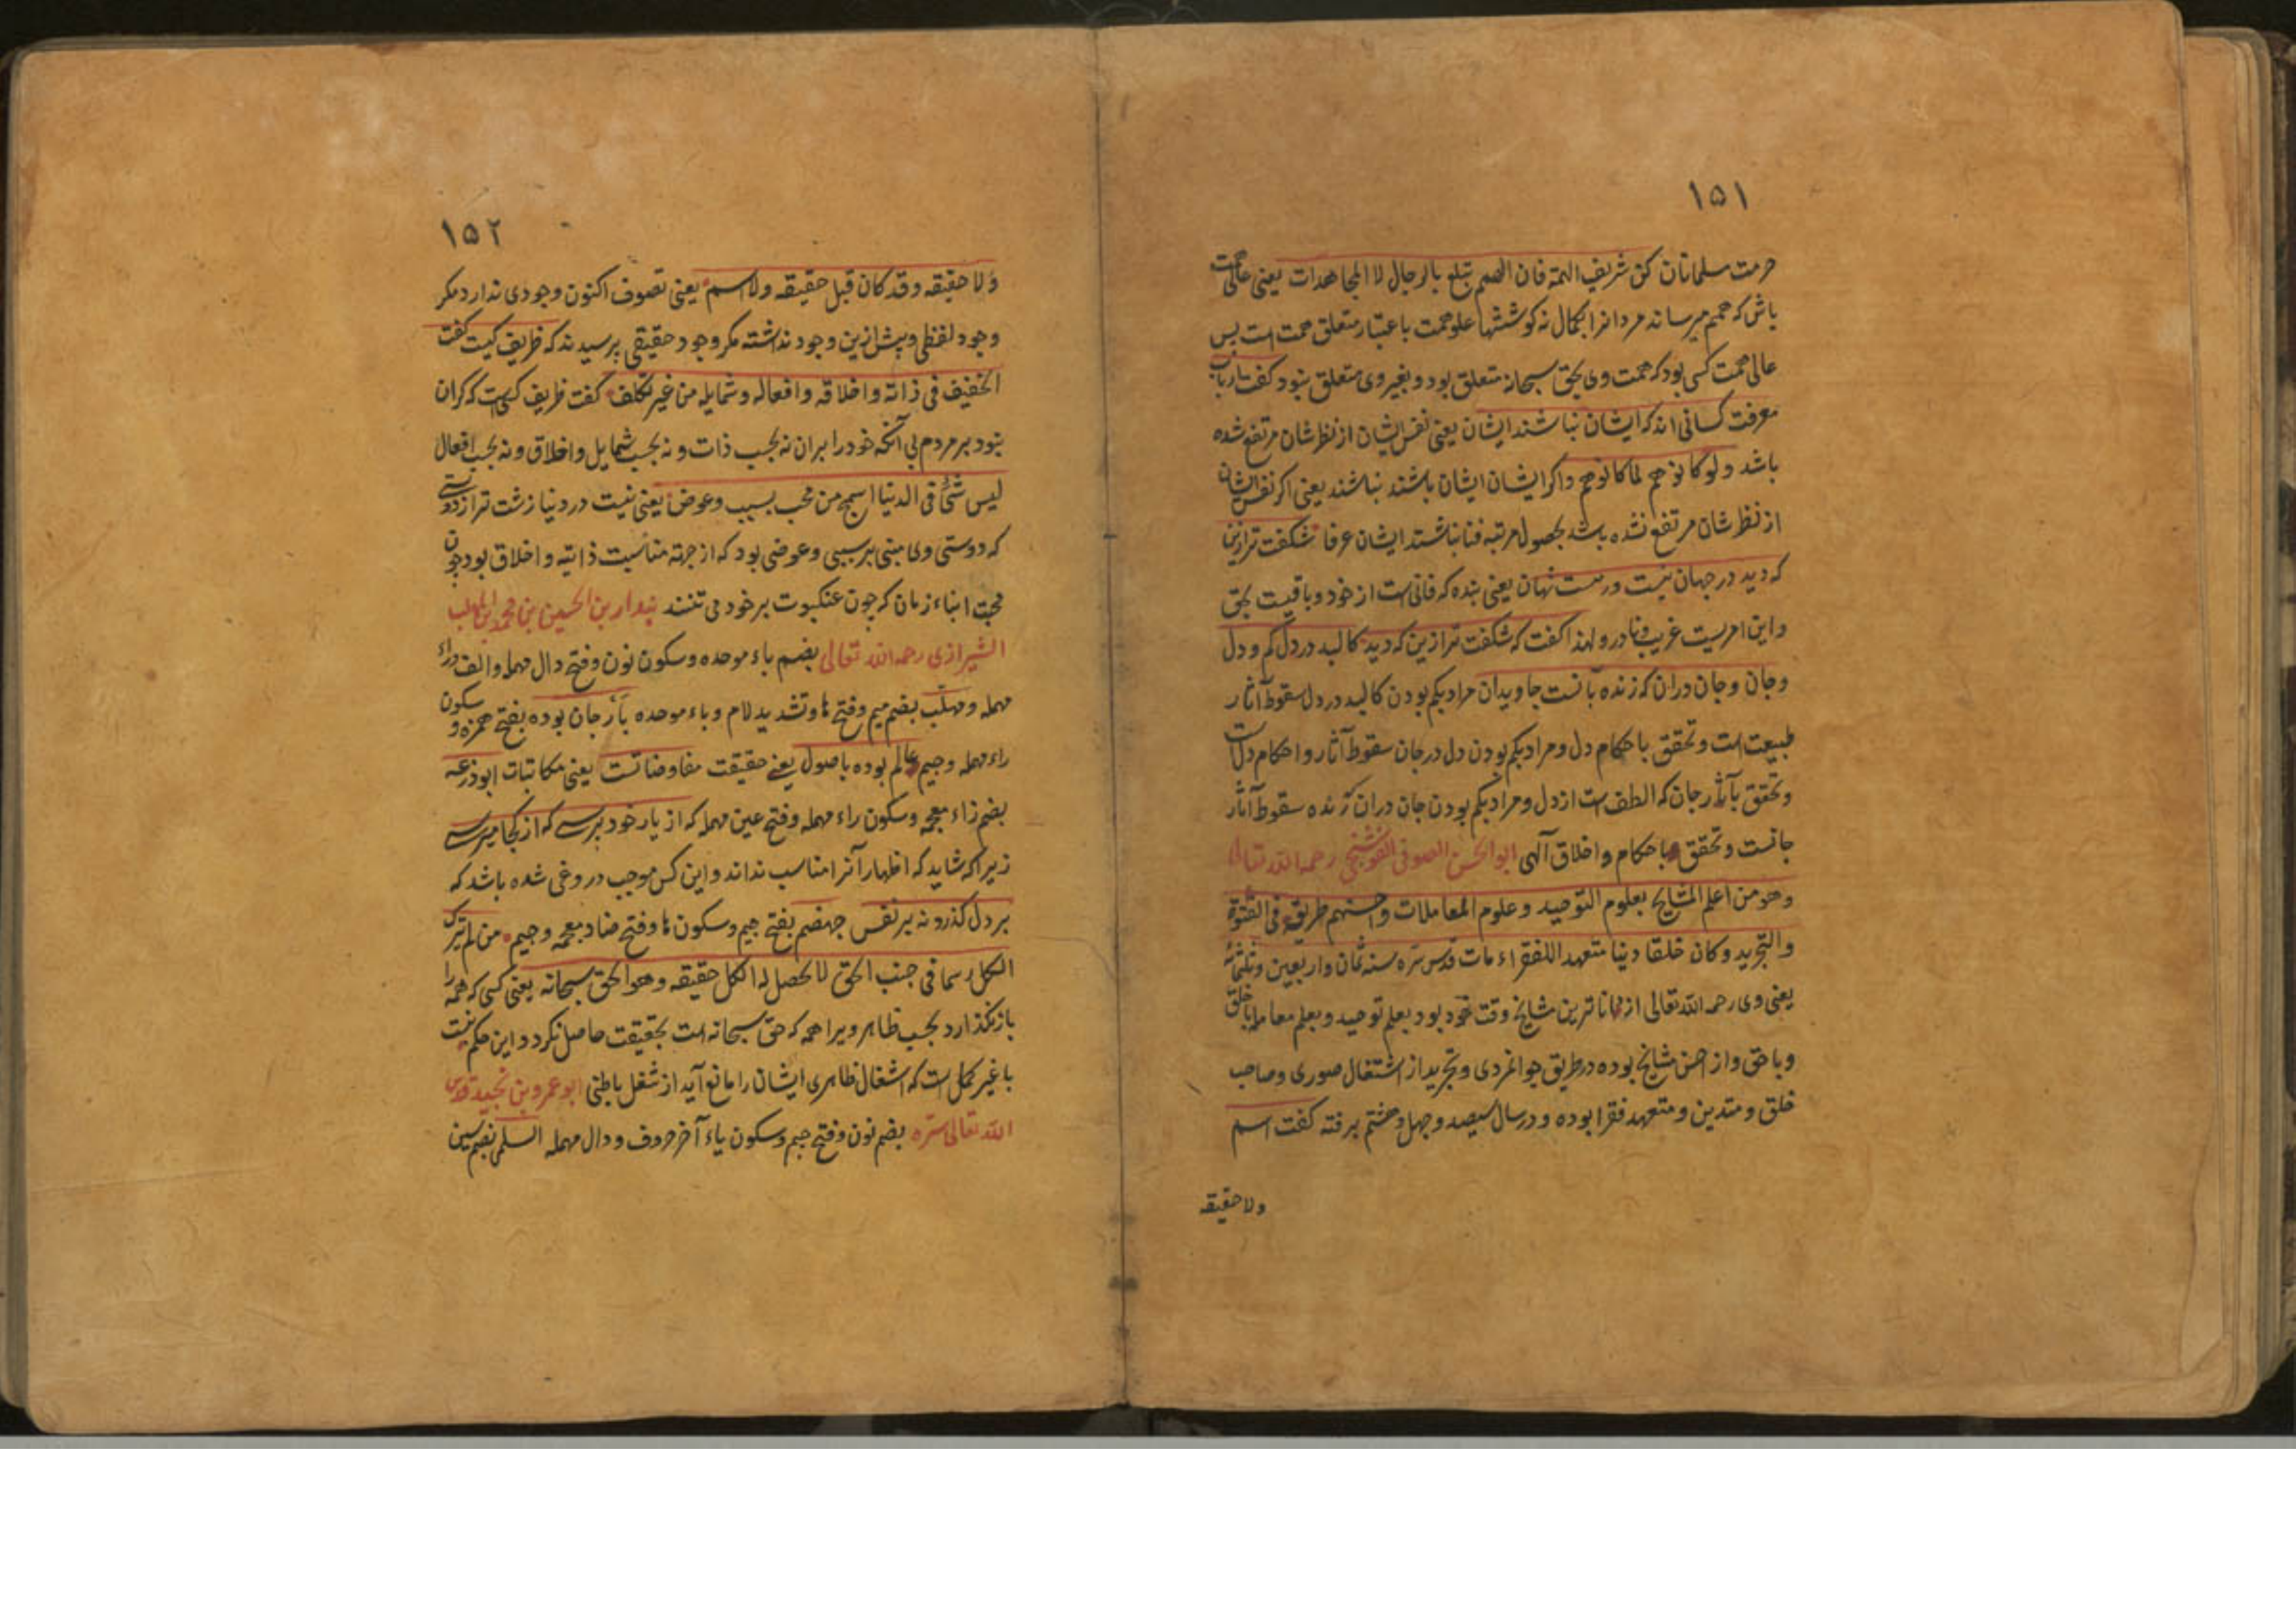 ۱۵۱
حرمت سلمانان کن شریف الهمة فان الهمم تبلغ بالرجال لا المجاهدات یعنی عالی همت
باش که همم میرساند مردانرا بکمال نه کوششها علو همت باعتبار متعلق همت است پس
عالی همت کسی بود که همت وی بحق سبحانه متعلق بود و بغیر وی متعلق نبود کفت ارباب
معرفت کسانی اند که ایشان نباشند ایشان یعنی نفس ایشان از نظرشان مرتفع شده
باشد ولو کانوهم لما کانوهم واکر ایشان ایشان باشند نباشند یعنی اکر نفس ایشان
از نظرشان مرتفع نشده باشد بحصول مرتبه فنا نباشند ایشان عرفا شکفت تر ازین
که دید در جهان نیست ورست نهان یعنی بنده که فانی است از خود و باقیست بحق
و این امریست غریب و نادر و لهذا کفت که شکفت تر ازین که دید کالبد در دل کم و دل
وجان وجان دران که زنده بآنست جاویدان مراد بکم بودن کالبد در دل سقوط آثار
طبیعت است و تحقق باحکام دل و مراد بکم بودن دل در جان سقوط آثار و احکام دل است
و تحقق بآثار جان که الطف است از دل و مراد بکم بودن جان دران زنده سقوط آثار
جانست و تحقق باحکام و اخلاق آلهی ابو الحسن الصوفی الفوشنجی رحمه الله تعالی
وهو من اعلم المشایخ بعلوم التوحید و علوم المعاملات و احسنهم طریقه فی الفتوة
والتجرید وکان خلقا دینا متعهدا للفقراء مات قدس سره سنه ثمان واربعین وثلثمائه
یعنی وی رحمه الله تعالی از داناترین مشایخ وقت خود بود بعلم توحید و بعلم معامله با خلق
و با حق و از احسن مشایخ بوده در طریق جوانمردی و تجرید از اشتغال صوری و صاحب
خلق و متدین و متعهد فقرا بوده و در سال سیصد و چهل و هشتم برفته کفت اسم
ولا حقیقه
۱۵۲
ولا حقیقه وقد کان قبل حقیقه ولا اسم یعنی تصوف اکنون وجودی ندارد مکر
وجود لفظی و پیش ازین وجود نداشته مکر وجود حقیقی پرسیدند که ظریف کیست کفت
الخفیف فی ذاته واخلاقه وافعاله وشمایله من غیر تکلف کفت ظریف کسی است که کران
نبود بر مردم بی آنکه خود را بران نه بحسب ذات و نه بحسب شمایل و اخلاق و نه بحسب افعال
لیس شئ فی الدنیا اسمج من محب بسبب وعوض یعنی نیست در دنیا زشت تر از دوستی
که دوستی وی مبنی بر سببی و عوضی بود که از جهته مناسبت ذاتیه و اخلاق بود چون
محبت ابناء زمان که چون عنکبوت بر خود می تنند بندار بن الحسین بن محمد بن المهلب
الشیرازی رحمه الله تعالی بضم باء موحده وسکون نون وفتح دال مهمله والف وراء
مهمله ومهلب بضم میم وفتح ها وتشدید لام وباء موحده بأرجان بوده بفتح همزه وسکون
راء مهمله وجیم عالم بوده باصول یعنی حقیقت مفاوضاتست یعنی مکاتبات ابو زرعه
بضم زاء معجمه وسکون راء مهمله وفتح عین مهمله که از یار خود پرسی که از کجا میرسی
زیرا که شاید که اظهار آنرا مناسب نداند و این کس موجب دروغی شده باشد که
بر دل کذرد نه بر نفس جهضم بفتح جیم وسکون ها وفتح ضاد معجمه وجیم من لم یترک
الکل رسما فی جنب الحق لا یحصل له الکل حقیقه وهو الحق سبحانه یعنی کسی که همه را
باز نکذارد بحسب ظاهر ویرا همه که حق سبحانه است بحقیقت حاصل نکردد و این حکم نسبت
با غیر کمل است که اشغال ظاهری ایشان را مانع آید از شغل باطنی ابو عمرو بن نجید قدس
الله تعالی سره بضم نون وفتح جیم وسکون یاء آخر حروف ودال مهمله السلمی بضم سین